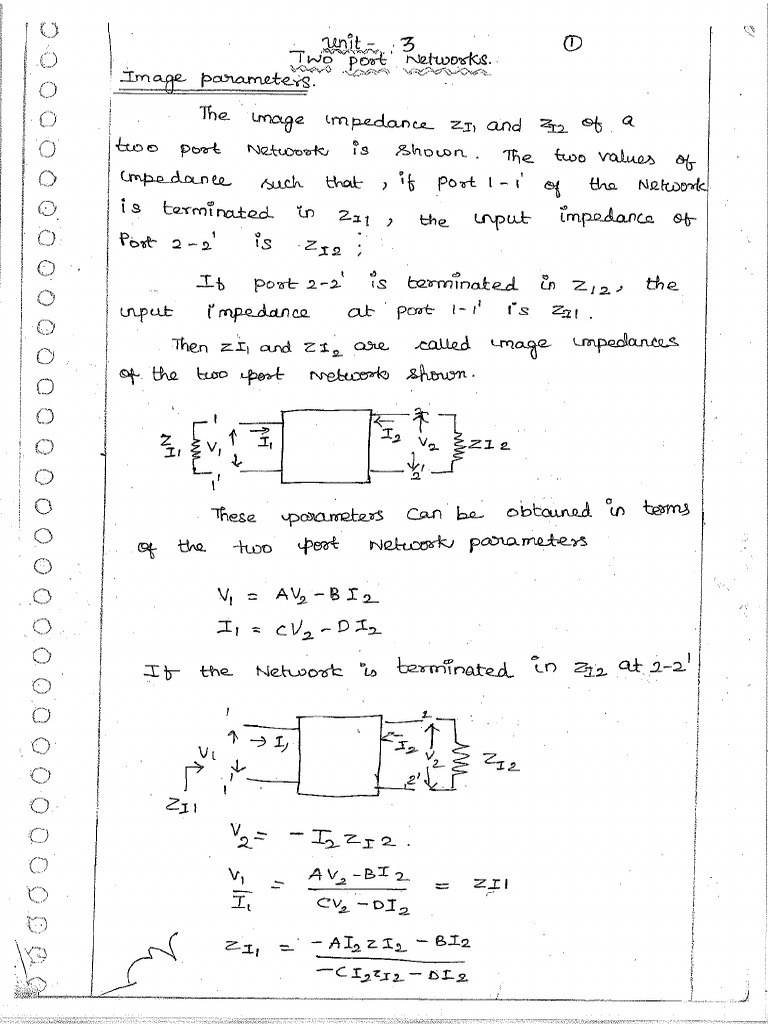 Unit - 3
①
Two port Networks.
Image parameters.
The image impedance ZI1 and ZI2 of a
two port Network is shown. The two values of
impedance such that, if port 1-1' of the Network
is terminated in ZI1, the input impedance of
Port 2-2' is ZI2;
If port 2-2' is terminated in ZI2, the
input impedance at port 1-1' is ZI1.
Then ZI1 and ZI2 are called image impedances
of the two port Network shown.
ZI1 1 V1 1' I1 I2 2 V2 2' ZI2
These parameters can be obtained in terms
of the two port Network parameters
V1 = AV2 - BI2
I1 = CV2 - DI2
If the Network is terminated in ZI2 at 2-2'
ZI1 V1 1 1' I1 I2 2 V2 2' ZI2
V2 = - I2 ZI2.
V1/I1 = (AV2 - BI2)/(CV2 - DI2) = ZI1
ZI1 = (-AI2 ZI2 - BI2)/(-CI2 ZI2 - DI2)